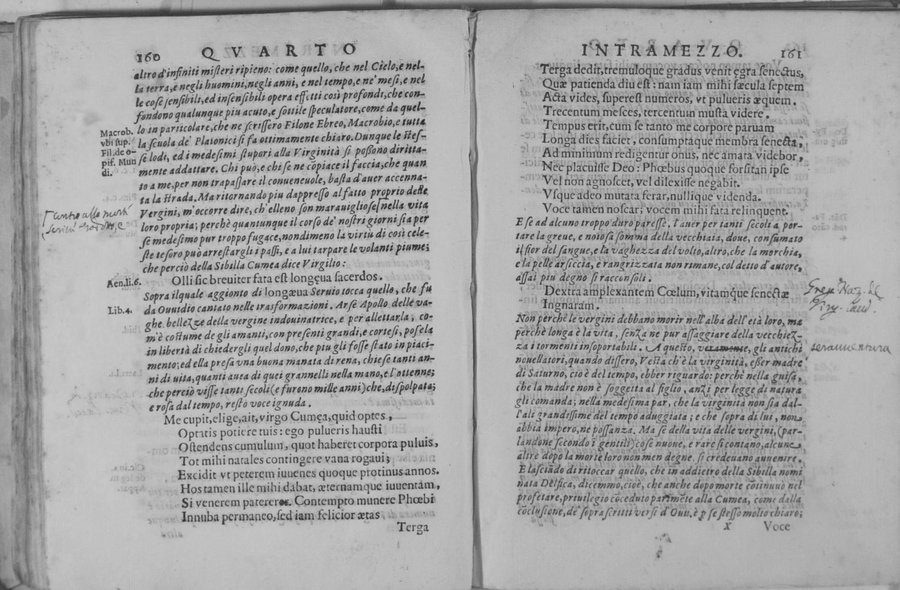 160 QVARTO
altro d'infiniti misteri ripieno: come quello, che nel Cielo, e nel-
la terra, e negli huomini, negli anni, e nel tempo, e ne' mesi, e nel
le cose sensibili, ed insensibili opera effetti così profondi, che con-
fondono qualunque piu acuto, e sottile speculatore, come da quel-
lo in particolare, che ne scrissero Filone Ebreo, Macrobio, e tutta
la scuola de' Platonici si fa ottimamente chiaro. Dunque le stes-
se lodi, ed i medesimi stupori alla Virginità si possono diritta-
mente addattare. Chi può, e chi se ne cōpiace il faccia, che quan
to a me, per non trapassare il conueneuole, basta d'auer accenna-
ta la strada. Ma ritornando piu dappresso al fatto proprio delle
Vergini, m'occorre dire, ch'elleno son marauigliose nella vita
loro propria; perchè quantunque il corso de' nostri giorni sia per
se medesimo pur troppo fugace, nondimeno la virtù di così cele-
ste tesoro può arrestargli i passi, e a lui tarpare le volanti piume;
che perciò della Sibilla Cumea dice Virgilio:
Olli sic breuiter fata est longęua sacerdos.
Sopra il quale aggionto di longæua Seruio tocca quello, che fu
da Ouuidio cantato nelle trasformazioni. Arse Apollo delle va-
ghe bellezze della vergine indouinatrice, e per allettarla, co-
m'è costume de gli amanti, con presenti grandi, e cortesi, posela
in libertà di chiedergli quel dono, che piu gli fosse stato in piaci-
mento; ed ella presa vna buona manata di rena, chiese tanti an-
ni di uita, quanti auea di quei granelli nella mano, e l'ottenne;
che perciò visse tanti secoli (e furono mille anni) che, dispolpata;
e rosa dal tempo, restò voce ignuda.
Me cupit, elige, ait, virgo Cumęa, quid optes,
Optatis potiere tuis: ego pulueris hausti
Ostendens cumulum, quot haberet corpora puluis,
Tot mihi natales contingere vana rogaui;
Excidit vt peterem iuuenes quoque protinus annos.
Hos tamen ille mihi dabat, æternamque iuuentam,
Si venerem paterer. Contempto munere Phœbi
Innuba permaneo, sed iam felicior ætas
Terga
Macrob.
vbi sup.
Fil. de o-
pif. Mun
di.
Aen. li. 6.
Lib. 4.
INTRAMEZZO. 161
Terga dedit, tremuloque gradus venit ęgra senectus,
Quæ patienda diu est: nam iam mihi sæcula septem
Acta vides, superest numeros, vt pulueris æquem.
Trecentum messes, tercentum musta videre.
Tempus erit, cum se tanto me corpore paruam
Longa dies faciet, consumptaque membra senecta,
Ad minimum redigentur onus, nec amata videbor,
Nec placuisse Deo: Phœbus quoque forsitan ipse
Vel non agnoscet, vel dilexisse negabit.
Vsque adeo mutata ferar, nullique videnda.
Voce tamen noscar; vocem mihi fata relinquent.
E se ad alcuno troppo duro paresse, l'auer per tanti secoli a por-
tare la greue, e noiosa somma della vecchiaia, doue, consumato
il fior del sangue, e la vaghezza del volto, altro, che la morchia,
e la pelle arsiccia, e rangrizzata non rimane, col detto d'autore,
assai piu degno si racconsoli.
Dextra amplexantem Cœlum, vitamque senectæ
Ingnaram.
Non perchè le vergini debbano morir nell'alba dell'età loro, ma
perchè longa è la vita, senza ne pur assaggiare della vecchiez-
za i tormenti insoportabili. A questo, veramente, gli antichi
nouellatori, quando dissero, Vesta ch'è la virginità, esser madre
di Saturno, cio è del tempo, ebber riguardo: perchè nella guisa,
che la madre non è soggetta al figlio, anzi per legge di natura
gli comanda; nella medesima par, che la virginità non sia dal-
l'ali grandissime del tempo aduggiata; e che sopra di lui, non
abbia impero, ne possanza. Ma se della vita delle vergini, (par-
landone secondo i gentili) cose nuoue, e rare si contano, alcune
altre dopo la morte loro non men degne si credeuano auuenire.
E lasciādo di ritoccar quello, che in addietro della Sibilla nomi
nata Delfica, dicemmo, cioè, che anche dopo morte cōtinuò nel
profetare, priuilegio cōceduto parimēte alla Cumea, come dalla
cōclusione, de' sopra scritti versi d'Ouu. è p se stesso molto chiaro;
X Voce